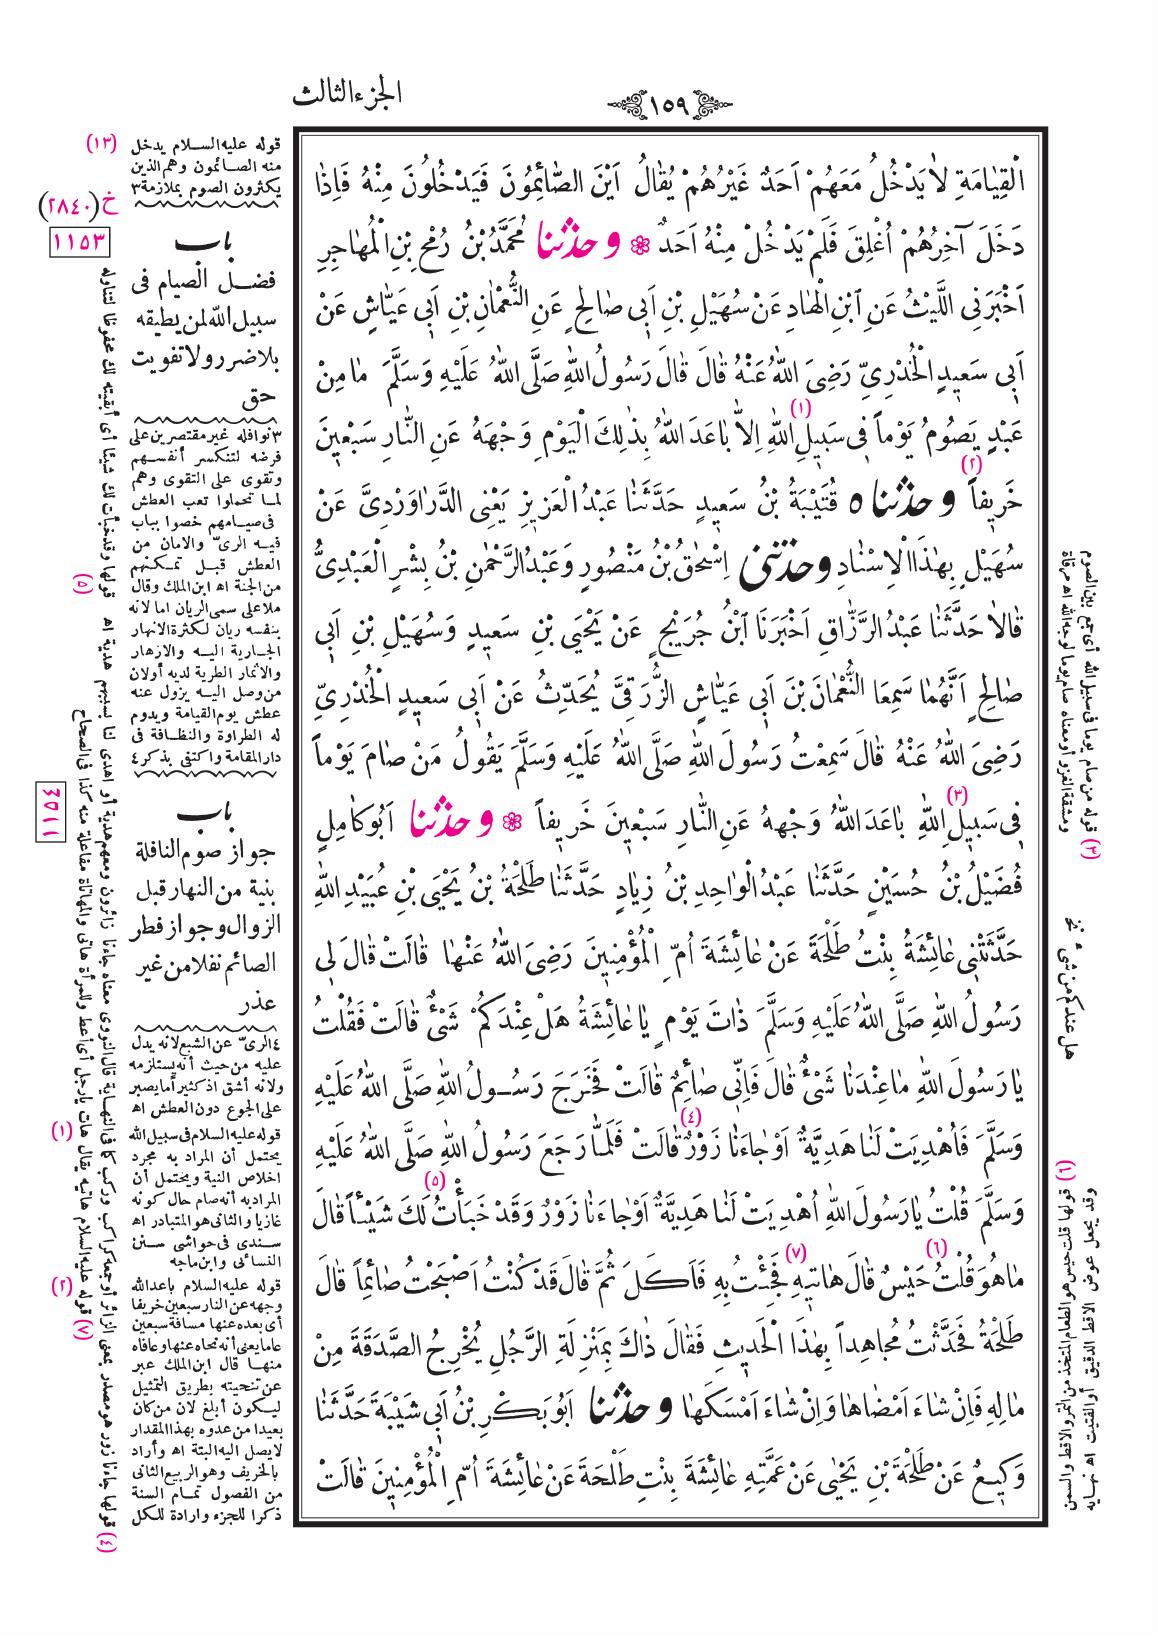 الجزء الثالث
١٥٩
الْقِيَامَةِ لَا يَدْخُلُ مَعَهُمْ اَحَدٌ غَيْرُهُمْ يُقَالُ اَيْنَ الصَّائِمُونَ فَيَدْخُلُونَ مِنْهُ فَاِذَا
دَخَلَ آخِرُهُمْ اُغْلِقَ فَلَمْ يَدْخُلْ مِنْهُ اَحَدٌ ۞ وحدثنا مُحَمَّدُ بْنُ رُمْحِ بْنِ الْمُهَاجِرِ
اَخْبَرَنِى اللَّيْثُ عَنِ ابْنِ الْهَادِ عَنْ سُهَيْلِ بْنِ اَبِى صَالِحٍ عَنِ النُّعْمَانِ بْنِ اَبِى عَيَّاشٍ عَنْ
اَبِى سَعِيدٍ الْخُدْرِىِّ رَضِىَ اللّٰهُ عَنْهُ قَالَ قَالَ رَسُولُ اللّٰهِ صَلَّى اللّٰهُ عَلَيْهِ وَسَلَّمَ مَا مِنْ
عَبْدٍ يَصُومُ يَوْماً فِى سَبِيلِ اللّٰهِ (١) اِلاَّ بَاعَدَ اللّٰهُ بِذٰلِكَ الْيَوْمِ وَجْهَهُ عَنِ النَّارِ سَبْعِينَ
خَرِيفاً (٢) وحدثنا ٥ قُتَيْبَةُ بْنُ سَعِيدٍ حَدَّثَنَا عَبْدُ الْعَزِيزِ يَعْنِى الدَّرَاوَرْدِىَّ عَنْ
سُهَيْلٍ بِهٰذَا الْاِسْنَادِ وحدثنى اِسْحٰقُ بْنُ مَنْصُورٍ وَعَبْدُ الرَّحْمٰنِ بْنُ بِشْرٍ الْعَبْدِىُّ
قَالَا حَدَّثَنَا عَبْدُ الرَّزَّاقِ اَخْبَرَنَا ابْنُ جُرَيْجٍ عَنْ يَحْيَى بْنِ سَعِيدٍ وَسُهَيْلِ بْنِ اَبِى
صَالِحٍ اَنَّهُمَا سَمِعَا النُّعْمَانَ بْنَ اَبِى عَيَّاشٍ الزُّرَقِىَّ يُحَدِّثُ عَنْ اَبِى سَعِيدٍ الْخُدْرِىِّ
رَضِىَ اللّٰهُ عَنْهُ قَالَ سَمِعْتُ رَسُولَ اللّٰهِ صَلَّى اللّٰهُ عَلَيْهِ وَسَلَّمَ يَقُولُ مَنْ صَامَ يَوْماً
فِى سَبِيلِ اللّٰهِ (٣) بَاعَدَ اللّٰهُ وَجْهَهُ عَنِ النَّارِ سَبْعِينَ خَرِيفاً ۞ وحدثنا اَبُو كَامِلٍ
فُضَيْلُ بْنُ حُسَيْنٍ حَدَّثَنَا عَبْدُ الْوَاحِدِ بْنُ زِيَادٍ حَدَّثَنَا طَلْحَةُ بْنُ يَحْيَى بْنِ عُبَيْدِ اللّٰهِ
حَدَّثَتْنِى عَائِشَةُ بِنْتُ طَلْحَةَ عَنْ عَائِشَةَ اُمِّ الْمُؤْمِنِينَ رَضِىَ اللّٰهُ عَنْهَا قَالَتْ قَالَ لِى
رَسُولُ اللّٰهِ صَلَّى اللّٰهُ عَلَيْهِ وَسَلَّمَ ذَاتَ يَوْمٍ يَا عَائِشَةُ هَلْ عِنْدَكُمْ شَىْءٌ قَالَتْ فَقُلْتُ
يَا رَسُولَ اللّٰهِ مَا عِنْدَنَا شَىْءٌ قَالَ فَاِنِّى صَائِمٌ قَالَتْ فَخَرَجَ رَسُولُ اللّٰهِ صَلَّى اللّٰهُ عَلَيْهِ
وَسَلَّمَ فَاُهْدِيَتْ لَنَا هَدِيَّةٌ اَوْ جَاءَنَا زَوْرٌ (٤) قَالَتْ فَلَمَّا رَجَعَ رَسُولُ اللّٰهِ صَلَّى اللّٰهُ عَلَيْهِ
وَسَلَّمَ قُلْتُ يَا رَسُولَ اللّٰهِ اُهْدِيَتْ لَنَا هَدِيَّةٌ اَوْ جَاءَنَا زَوْرٌ وَقَدْ خَبَأْتُ (٥) لَكَ شَيْئاً قَالَ
مَا هُوَ قُلْتُ حَيْسٌ (٦) قَالَ هَاتِيهِ (٧) فَجِئْتُ بِهِ فَاَكَلَ ثُمَّ قَالَ قَدْ كُنْتُ اَصْبَحْتُ صَائِماً قَالَ
طَلْحَةُ فَحَدَّثْتُ مُجَاهِداً بِهٰذَا الْحَدِيثِ فَقَالَ ذَاكَ بِمَنْزِلَةِ الرَّجُلِ يُخْرِجُ الصَّدَقَةَ مِنْ
مَالِهِ فَاِنْ شَاءَ اَمْضَاهَا وَاِنْ شَاءَ اَمْسَكَهَا وحدثنا اَبُو بَكْرِ بْنُ اَبِى شَيْبَةَ حَدَّثَنَا
وَكِيعٌ عَنْ طَلْحَةَ بْنِ يَحْيَى عَنْ عَمَّتِهِ عَائِشَةَ بِنْتِ طَلْحَةَ عَنْ عَائِشَةَ اُمِّ الْمُؤْمِنِينَ قَالَتْ
(٣) قوله من صام يوما فى سبيل الله أى جمع بين الصوم
ومشقة الغزو أو معناه صام يوما لوجه الله اه مرقاة
هل عندكم من شىء نخ
(٦) قولها قلت حيس هو الطعام المتخذ من التمر والاقط والسمن
وقد يجعل عوض الاقط الدقيق أو الفتيت اه نهايه
(١٣) قوله عليه السلام يدخل
منه الصائمون وهم الذين
يكثرون الصوم بملازمة ٣
خ (٢٨٤٠)
١١٥٣
باب
فضل الصيام فى
سبيل الله لمن يطيقه
بلا ضرر ولا تفويت
حق
٣ نوافله غير مقتصرين على
فرضه لتنكسر أنفسهم
وتقوى على التقوى وهم
لما تحملوا تعب العطش
فى صيامهم خصوا بباب
فيه الرىّ والامان من
العطش قبل تمكنهم
من الجنة اه ابن الملك وقال
ملا على سمى الريان اما لانه
بنفسه ريان لكثرة الانهار
الجارية اليه والازهار
والاثمار الطرية لديه أولان
من وصل اليه يزول عنه
عطش يوم القيامة ويدوم
له الطراوة والنظافة فى
دار المقامة واكتفى بذكر ٤
١١٥٤
باب
جواز صوم النافلة
بنية من النهار قبل
الزوال وجواز فطر
الصائم نفلا من غير
عذر
٤ الرىّ عن الشبع لانه يدل
عليه من حيث أنه يستلزمه
ولانه أشق اذ كثيراً ما يصبر
على الجوع دون العطش اه
(١) قوله عليه السلام فى سبيل الله
يحتمل أن المراد به مجرد
اخلاص النية ويحتمل أن
المراد به أنه صام حال كونه
غازيا والثانى هو المتبادر اه
سندى فى حواشى سنن
النسائى وابن ماجه
(٢) قوله عليه السلام باعد الله
وجهه عن النار سبعين خريفا
أى بعده عنها مسافة سبعين
عاما يعنى أنه نحاه عنها وعافاه
منها قال ابن الملك عبر
عن تنحيته بطريق التمثيل
ليكون أبلغ لان من كان
بعيدا من عدوه بهذا المقدار
لا يصل اليه البتة اه وأراد
بالخريف وهو الربيع الثانى
من الفصول تمام السنة
ذكرا للجزء وارادة للكل
(٤) قولها جاءنا زور هو مصدر بمعنى الزائر أو جمعه كراكب وركب كما فى النهاية قال النووى معناه جاءنا زائرون ومعهم هدية أو اهدى لنا بسببهم هدية اه (٥) قولها وقد خبأت لك شيئا أى أبقيته لك محفوظا لتناوله
(٧) قوله عليه السلام هاتيه يقال هات يا رجل أى أعط وللمرأة هاتى والمهاتاة مفاعلة منه كذا فى الصحاح